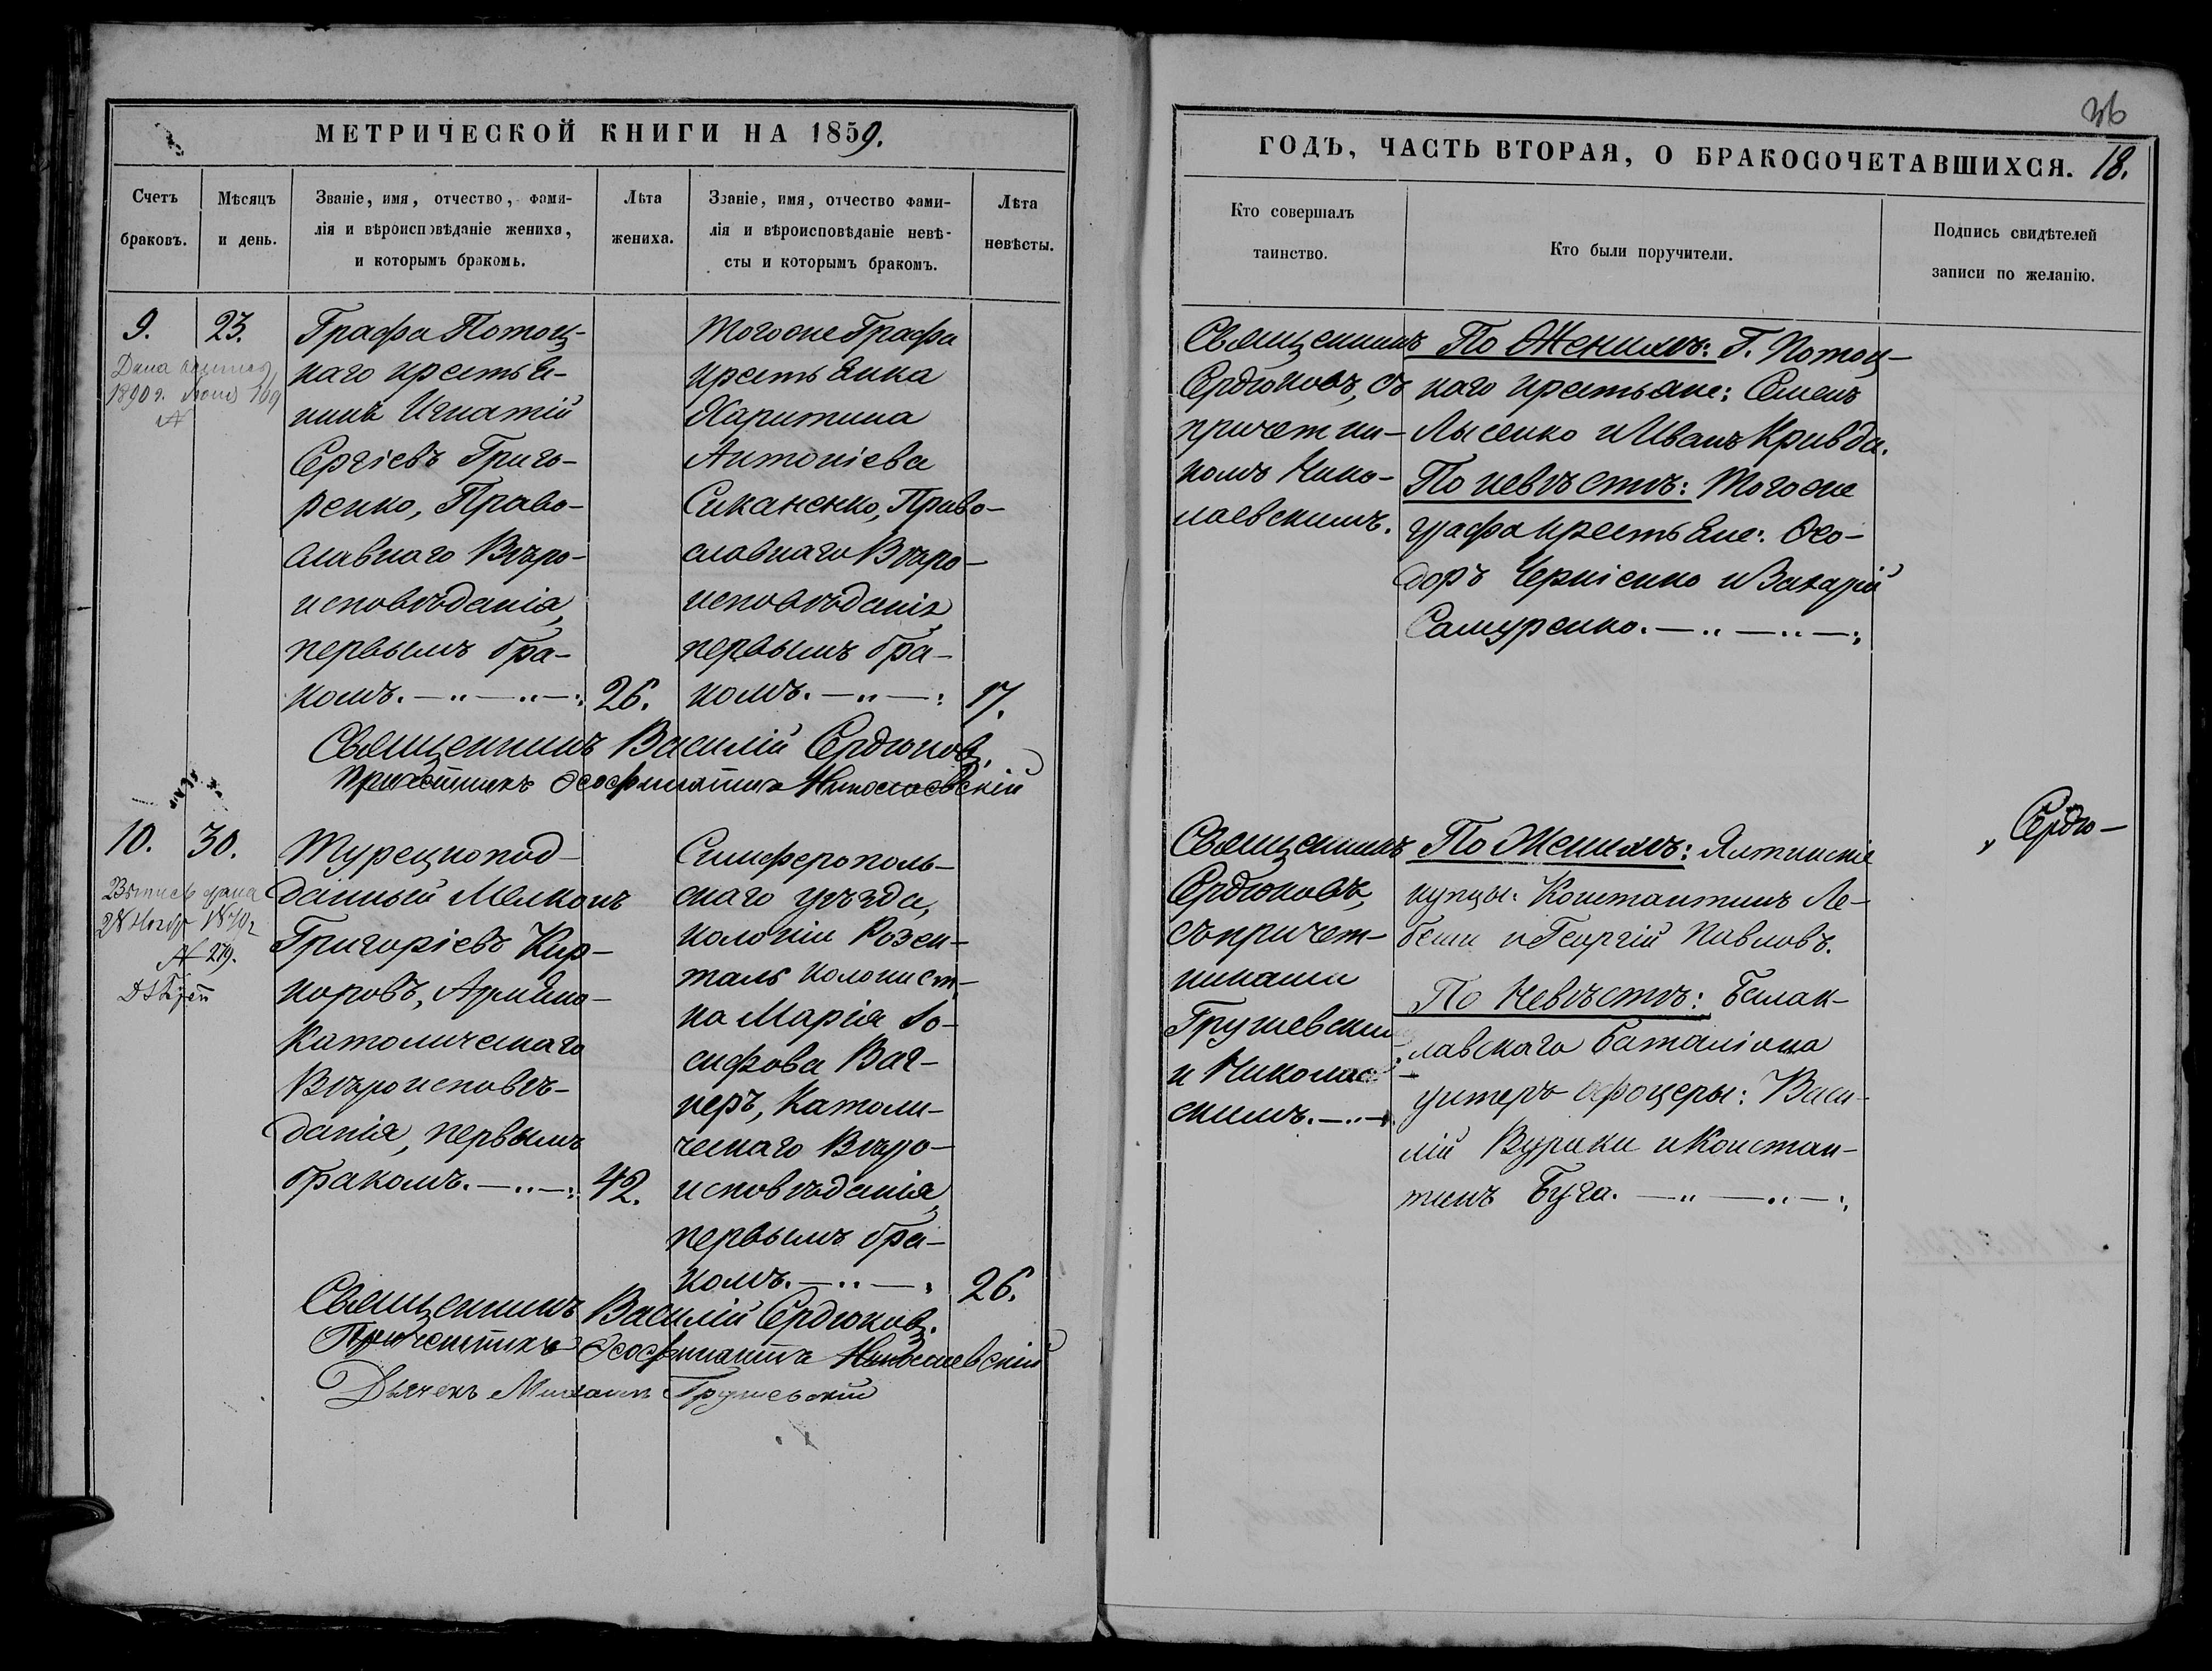 МЕТРИЧЕСКОЙ КНИГИ НА 1859.
Счетъ браковъ.
Мѣсяцъ и день.
Званіе, имя, отчество, фами-
лія и вѣроисповѣданіе жениха,
и которымъ бракомъ.
Лѣта жениха.
Званіе, имя, отчество фами-
лія и вѣроисповѣданіе невѣ-
сты и которымъ бракомъ.
Лѣта невѣсты.
9.
23.
Дана
1890 г.
Графа Потоц-
каго крестья-
нинъ Игнатій
Сергіевъ Григо-
ренко, Право-
славнаго Вѣро-
исповѣданія,
первымъ бра-
комъ. — „ — „ — :
26.
Тогоже Графа
крестьянка
Харитина
Антоніева
Сиканенко, Право-
славнаго Вѣро-
исповѣданія,
первымъ бра-
комъ. — „ — :
17.
Священникъ Василій Сердюковъ.
Причетникъ Феофилактъ Николаевскій
10.
30.
дана
28 Нояб
№ 279.
Турецкопод-
данный Мелконъ
Григоріевъ Кир-
коровъ, Армяно-
Католическаго
Вѣроисповѣ-
данія, первымъ
бракомъ. — „ — :
42.
Симферополь-
скаго уѣзда,
колоніи Розен-
таль колонист-
ка Марія Іо-
сифова Ваг-
неръ, Католи-
ческаго Вѣро-
исповѣданія,
первымъ бра-
комъ. — „ — :
26.
Священникъ Василій Сердюковъ.
Причетникъ Феофилактъ Николаевскій
Дьячекъ Михаилъ Грушевскій
36
ГОДЪ, ЧАСТЬ ВТОРАЯ, О БРАКОСОЧЕТАВШИХСЯ. 18.
Кто совершалъ
таинство.
Кто были поручители.
Подпись свидѣтелей
записи по желанію.
Священникъ
Сердюковъ, съ
причетни-
комъ Нико-
лаевскимъ.
По Женихѣ: Г. Потоц-
каго крестьяне: Семенъ
Лысенко и Иванъ Кривда.
По невѣстѣ: Тогоже
графа крестьяне: Фео-
доръ Черніенко и Захарій
Самуренко. — „ — „ — :
Священникъ
Сердюковъ,
съ причет-
никами
Грушевским
и Николаев-
скимъ. — „ —
По Женихѣ: Ялтинскіе
купцы: Константинъ Ле-
беши и Георгій Павловъ.
По Невѣстѣ: Балак-
лавскаго баталіона
унтеръ офицеры: Васи-
лій Вураки и Констан-
тинъ Буга. — „ — „ — :
Сердю-